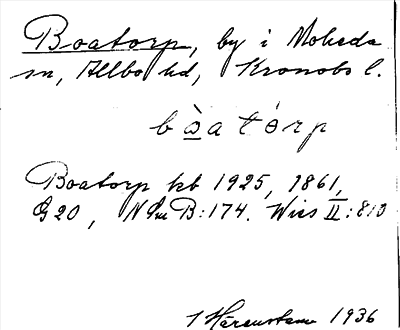 Boatorp, by i Moheda
sn, Allbo hd, Kronobs l.
bòatórp
Boatorp kb 1925, 1861,
G20, N Sm B:174. Wies II:813
Härenstam 1936